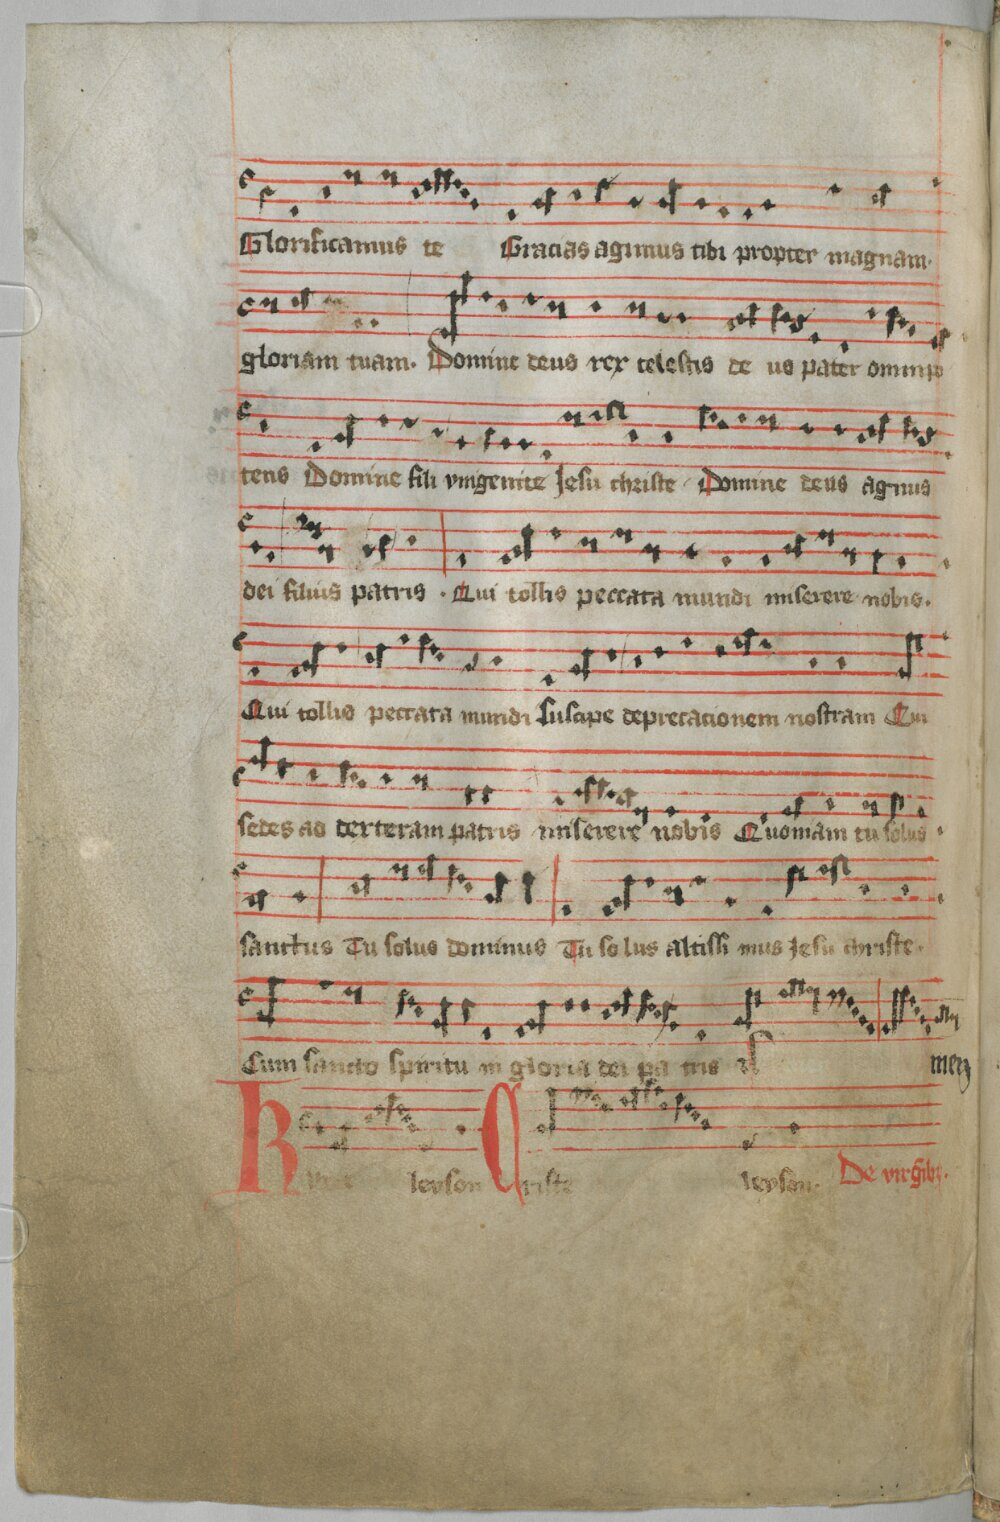 Glorificamus te Gracias agimus tibi propter magnam.
gloriam tuam. Domine deus rex celestis de us pater omnipo
tens Domine fili vnigenite Jesu christe Domine deus agnus
dei filius patris . Qui tollis peccata mundi miserere nobis.
Qui tollis peccata mundi Suscipe deprecacionem nostram Qui
sedes ad dexteram patris miserere nobis Quoniam tu solus
sanctus Tu solus dominus Tu so lus altissi mus Jesu christe.
Cum sancto spiritu in gloria dei pa tris A men
K leyson Christe leyson. De virginibus.